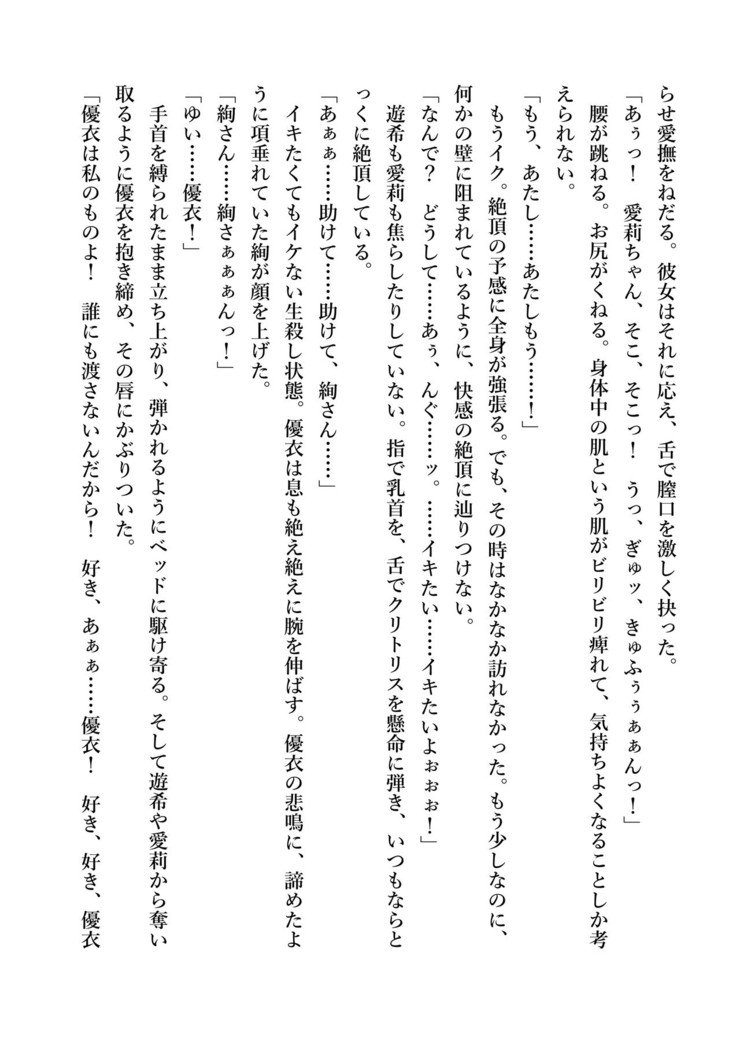 らせ愛撫をねだる。彼女はそれに応え、舌で膣口を激しく抉った。
「あぅっ！　愛莉ちゃん、そこ、そこっ！　うっ、ぎゅッ、きゅふぅぅぁぁんっ！」
　腰が跳ねる。お尻がくねる。身体中の肌という肌がビリビリ痺れて、気持ちよくなることしか考
えられない。
「もう、あたし……あたしもう……！」
　もうイク。絶頂の予感に全身が強張る。でも、その時はなかなか訪れなかった。もう少しなのに、
何かの壁に阻まれているように、快感の絶頂に辿りつけない。
「なんで？　どうして……あぅ、んぐ……ッ。……イキたい……イキたいよぉぉぉ！」
　遊希も愛莉も焦らしたりしていない。指で乳首を、舌でクリトリスを懸命に弾き、いつもならと
っくに絶頂している。
「あぁぁ……助けて……助けて、絢さん……」
　イキたくてもイケない生殺し状態。優衣は息も絶え絶えに腕を伸ばす。優衣の悲鳴に、諦めたよ
うに項垂れていた絢が顔を上げた。
「絢さん……絢さぁぁぁんっ！」
「ゆい……優衣！」
　手首を縛られたまま立ち上がり、弾かれるようにベッドに駆け寄る。そして遊希や愛莉から奪い
取るように優衣を抱き締め、その唇にかぶりついた。
「優衣は私のものよ！　誰にも渡さないんだから！　好き、あぁぁ……優衣！　好き、好き、優衣